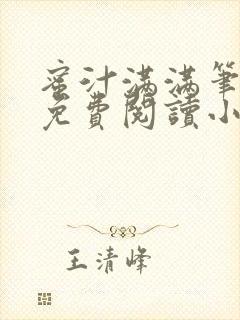 蜜汁满满筆
免費閱讀小
王清峰